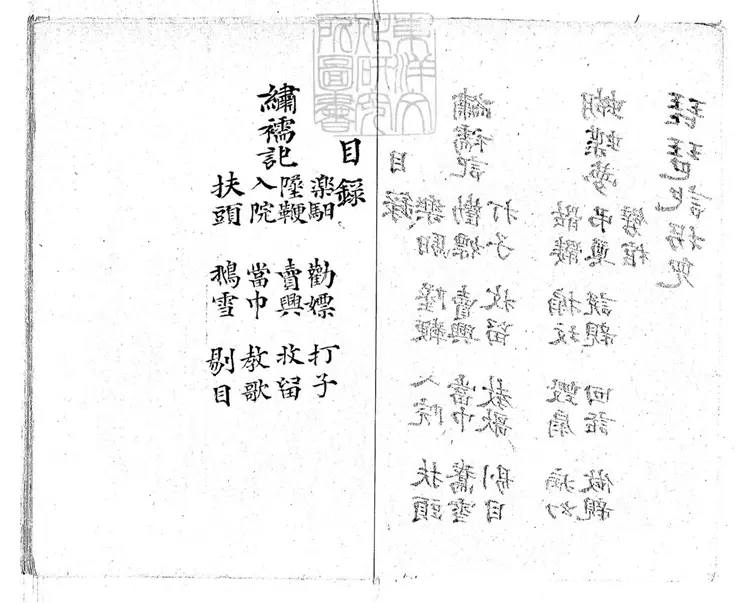 東洋文
化研究
所圖書
琵琶記拐兒
蝴蝶夢
骷髏 搧坟 毀扇 病幻
弔奠 說親 回話 做親
劈棺
繡襦記
目錄
樂馹 墜鞭 入院 扶頭
勸嫖 賣興 當巾 鵝雪
打子 收留 教歌 剔目
繡襦記
目錄
樂馹 勸嫖 打子
墜鞭 賣興 收留
入院 當巾 教歌
扶頭 鵝雪 剔目